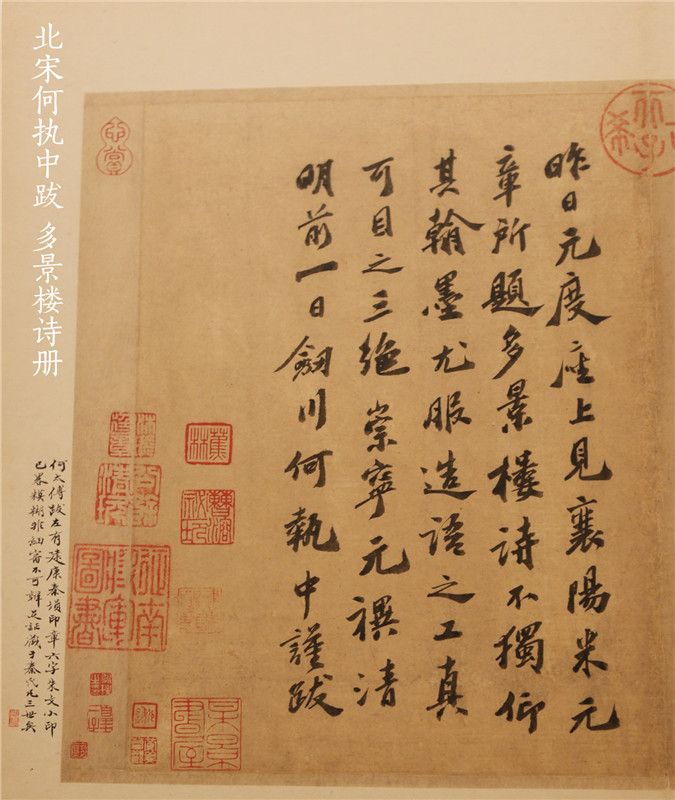 北宋何执中跋 多景楼诗册
昨日元度座上見襄陽米元
章所題多景樓詩不獨仰
其翰墨尤服造語之工真
可目之三絶崇寧元禩清
明前一日劔川何執中謹跋
蕉林
何太傅跋左有建康秦塤印章六字朱文小印
已畧糢糊非細審不可辨足証藏于秦氏凡三世矣